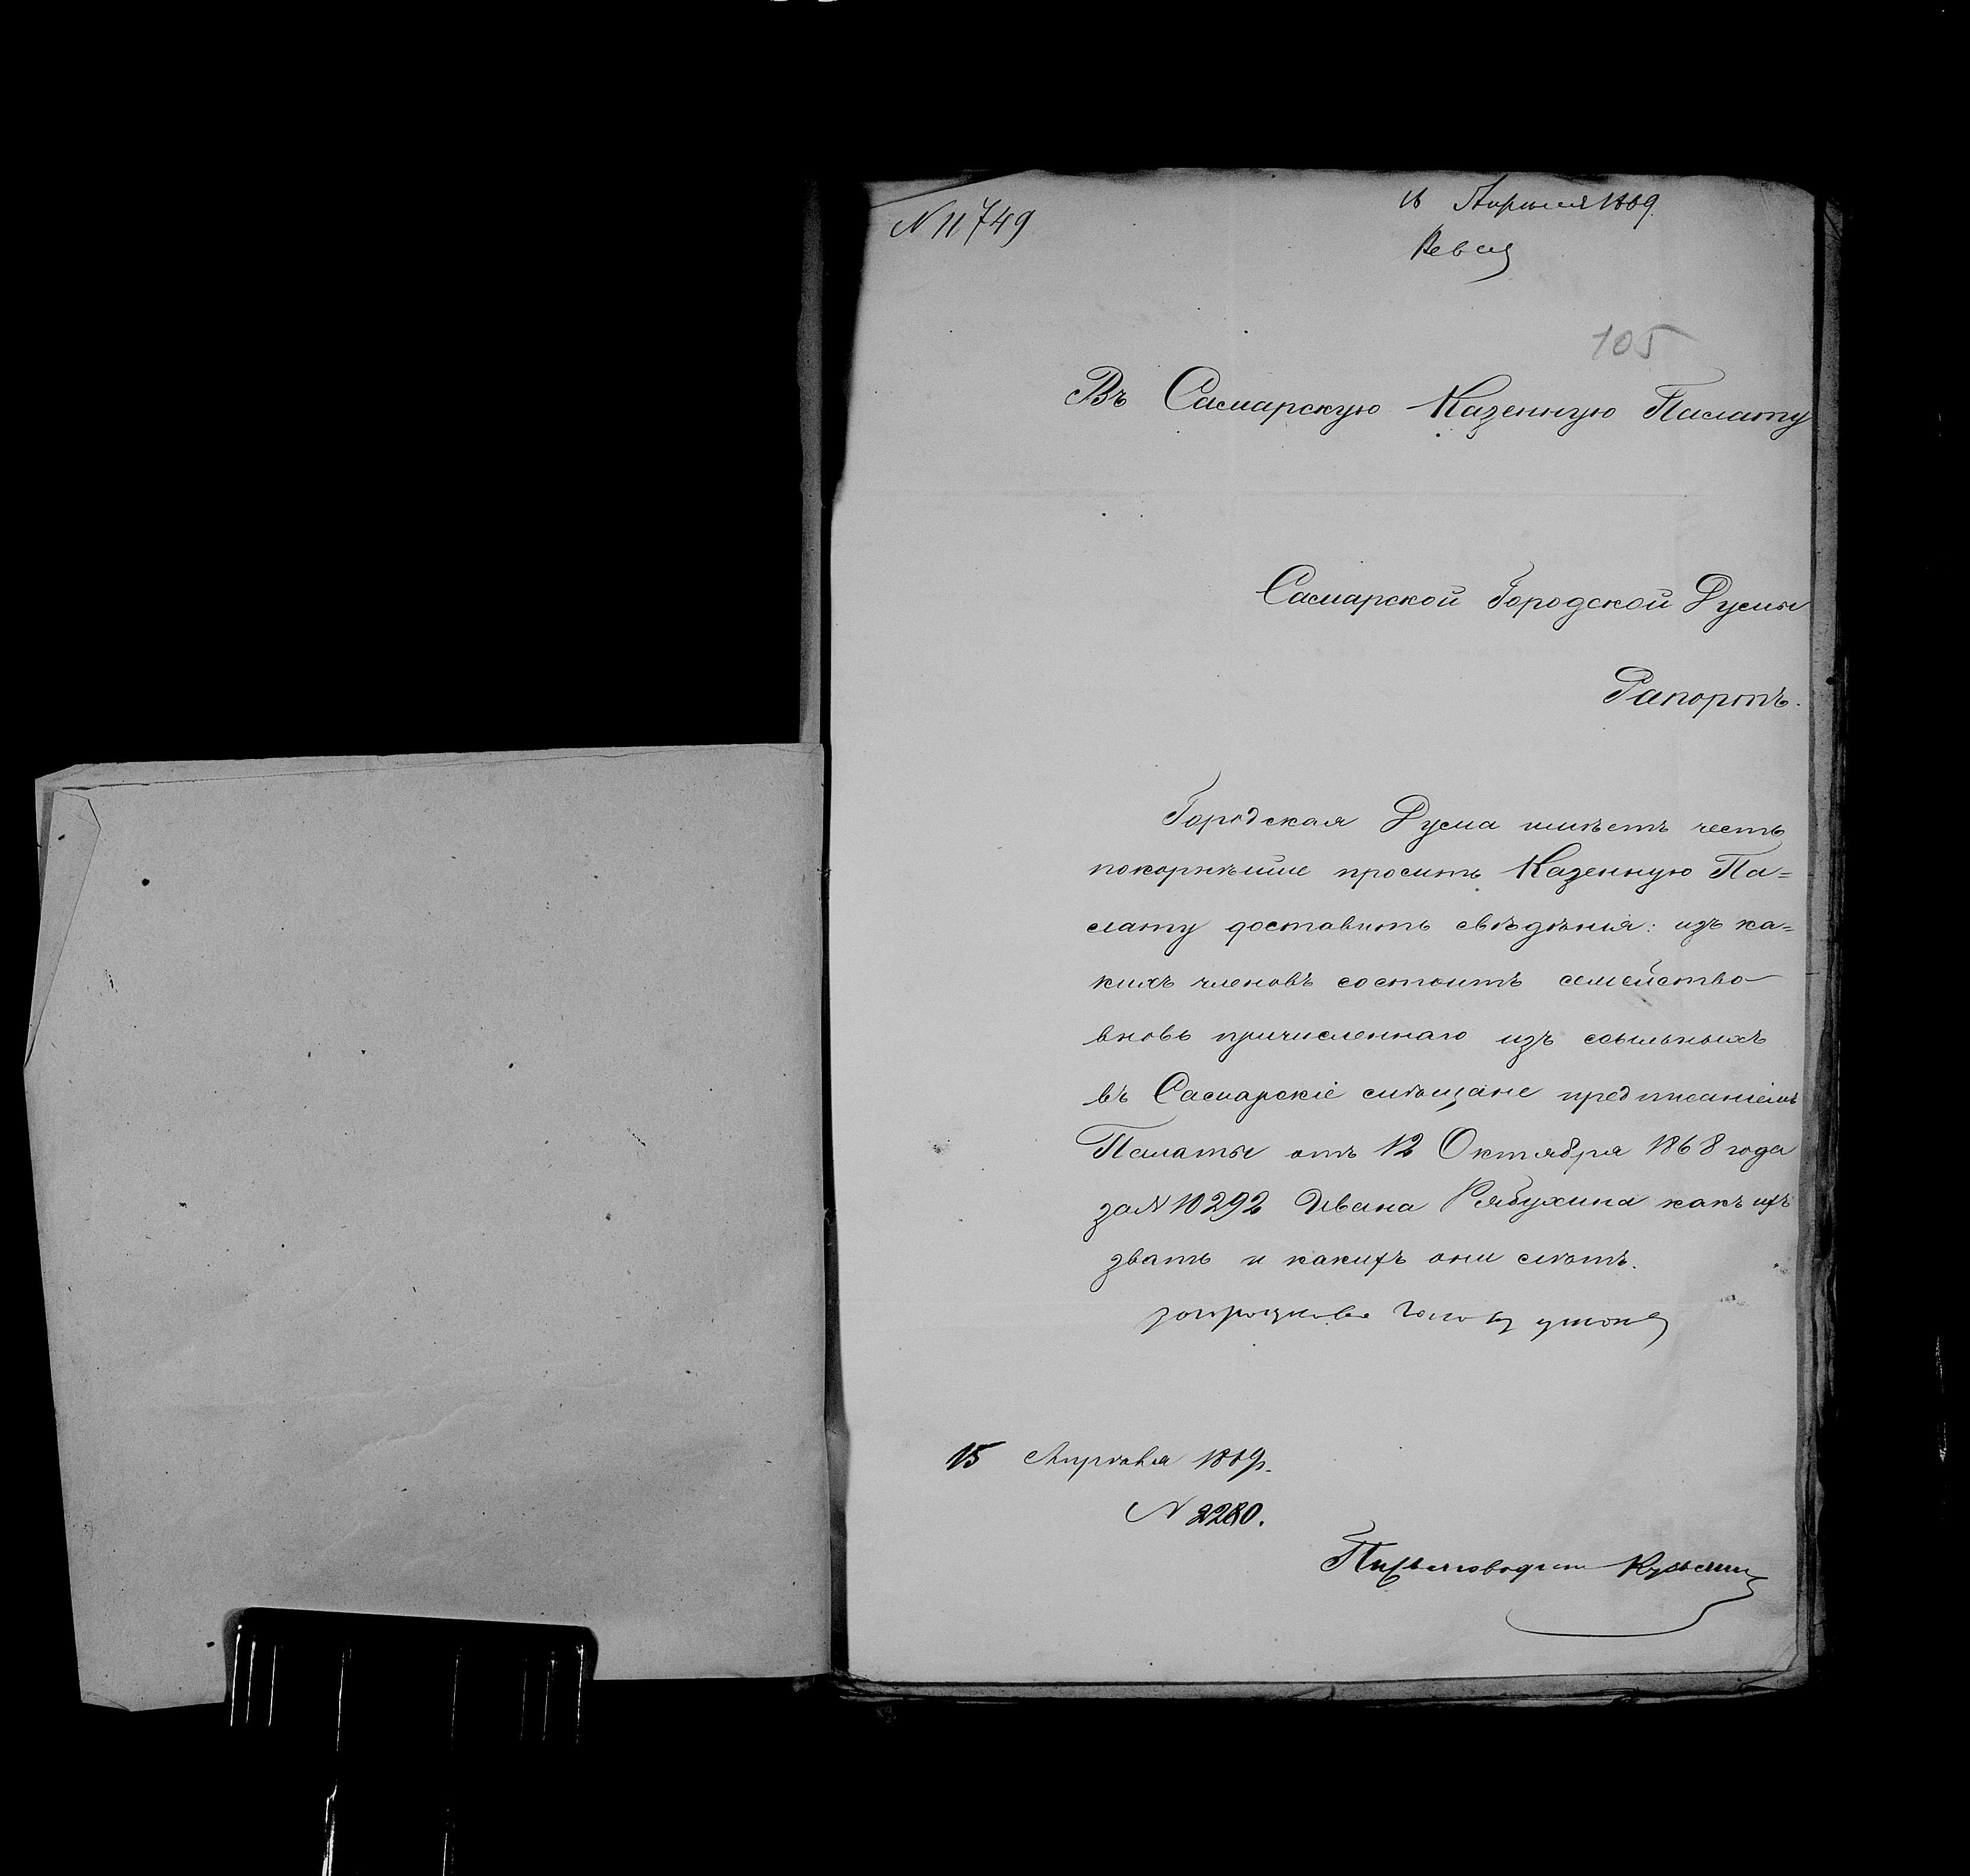 N 11749
16 Апреля 1869.
Рев
105
Въ Самарскую Казенную Палату
Самарской Городской Думы
Рапортъ.
Городская Дума имѣетъ честь
покорнѣйше просить Казенную Па=
лату доставить свѣдѣнія: изъ ка=
кихъ членовъ состоитъ семейство
вновь причисленнаго изъ ссыльныхъ
въ Самарскіе мѣщане предписаніемъ
Палаты отъ 12 Октября 1868 года
за N 10292 Ивана Рябухина какъ ихъ
звать и какихъ они лѣтъ.
15 Апрѣля 1869г.
N 2280.
Письмоводитель